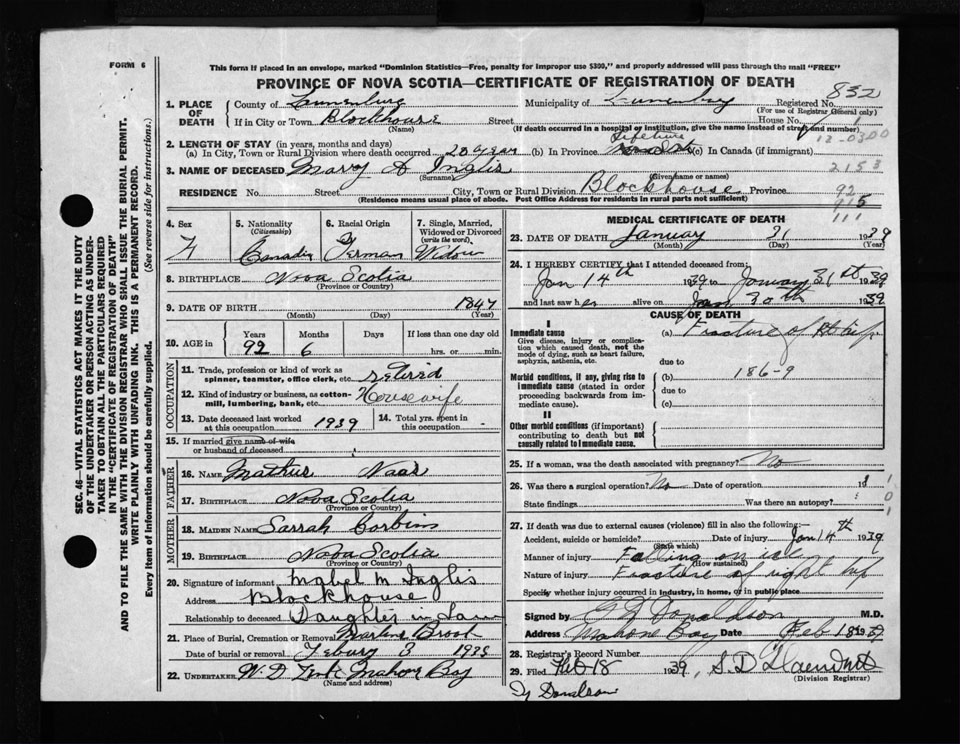 FORM 6
This form if placed in an envelope, marked "Dominion Statistics—Free, penalty for improper use $300," and properly addressed will pass through the mail "FREE"
PROVINCE OF NOVA SCOTIA—CERTIFICATE OF REGISTRATION OF DEATH
832
1. PLACE OF DEATH
County of Lunenburg Municipality of Lunenburg Registered No.
(For use of Registrar General only)
If in City or Town Blockhouse Street House No. 1
(Name) (If death occurred in a hospital or institution, give the name instead of street and number)
12-0300
2. LENGTH OF STAY (in years, months and days)
(a) In City, Town or Rural Division where death occurred 20 year (b) In Province Lifetime (c) In Canada (if immigrant)
3. NAME OF DECEASED Mary A Inglis
(Surname) (Given name or names)
2153
RESIDENCE No. Street City, Town or Rural Division Blockhouse Province
(Residence means usual place of abode. Post Office Address for residents in rural parts not sufficient)
92
115
111
4. Sex 5. Nationality (Citizenship) 6. Racial Origin 7. Single, Married, Widowed or Divorced (write the word)
F Canadin German Widow
8. BIRTHPLACE Nova Scotia
(Province or Country)
9. DATE OF BIRTH 1847
(Month) (Day) (Year)
10. AGE in Years Months Days If less than one day old
92 6 hrs. or min.
OCCUPATION
11. Trade, profession or kind of work as spinner, teamster, office clerk, etc. retierd
12. Kind of industry or business, as cotton-mill, lumbering, bank, etc. Housewife
13. Date deceased last worked at this occupation 1939 14. Total yrs. spent in this occupation
15. If married give name of wife or husband of deceased
FATHER
16. NAME Mathus Naas
17. BIRTHPLACE Nova Scotia
(Province or Country)
MOTHER
18. MAIDEN NAME Sarrah Corbins
19. BIRTHPLACE Nova Scotia
(Province or Country)
20. Signature of informant Mabel M Inglis
Address Blockhouse
Relationship to deceased Daughter in Law
21. Place of Burial, Cremation or Removal Martins Brook
Date of burial or removal Febury 3 1939
22. UNDERTAKER W. D Mahone Bay
(Name and address)
MEDICAL CERTIFICATE OF DEATH
23. DATE OF DEATH January 31 1939
(Month) (Day) (Year)
24. I HEREBY CERTIFY that I attended deceased from:
Jan 14th 1939 to January 31st 1939
and last saw her alive on Jan 30th 1939
CAUSE OF DEATH
I
Immediate cause
Give disease, injury or complication which caused death, not the mode of dying, such as heart failure, asphyxia, asthenia, etc.
(a) Fracture of Rt hip
due to
Morbid conditions, if any, giving rise to immediate cause (stated in order proceeding backwards from immediate cause).
(b) 186-9
due to
(c)
II
Other morbid conditions (if important) contributing to death but not causally related to immediate cause.
25. If a woman, was the death associated with pregnancy? No
26. Was there a surgical operation? No Date of operation 19
State findings Was there an autopsy?
27. If death was due to external causes (violence) fill in also the following:—
Accident, suicide or homicide? Date of injury Jan 14th 1939
(State which)
Manner of injury Falling on ice
(How sustained)
Nature of injury Fracture of right hip
Specify whether injury occurred in industry, in home, or in public place
Signed by Donaldson M.D.
Address Mahone Bay Date Feb 18 1939
28. Registrar's Record Number
29. Filed Feb 18 1939 S. D
(Division Registrar)
Donalson
SEC. 46—VITAL STATISTICS ACT MAKES IT THE DUTY
OF THE UNDERTAKER OR PERSON ACTING AS UNDER-
TAKER TO OBTAIN ALL THE PARTICULARS REQUIRED
IN THE "CERTIFICATE OF REGISTRATION OF DEATH"
AND TO FILE THE SAME WITH THE DIVISION REGISTRAR WHO SHALL ISSUE THE BURIAL PERMIT.
WRITE PLAINLY WITH UNFADING INK. THIS IS A PERMANENT RECORD.
Every item of Information should be carefully supplied. (See reverse side for instructions.)